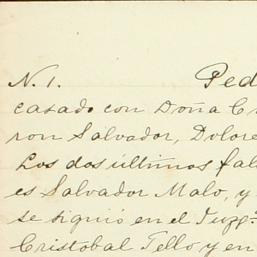 N. 1. Ped
casado con Doña Cr
ron Salvador, Dolore
Los dos últimos fal
es Salvador Malo, y
se siguió en el Juzg.
Cristobal Tello y en